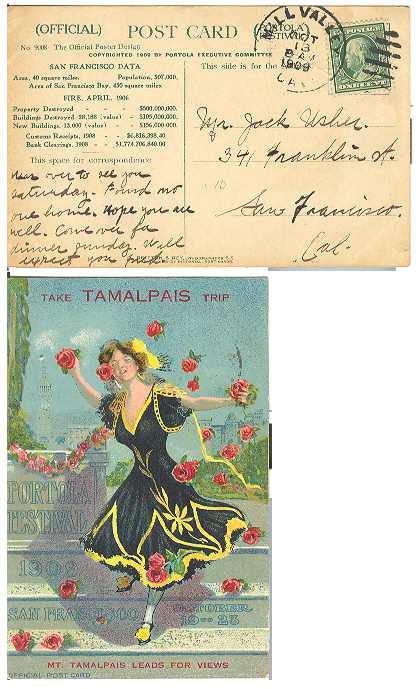 (OFFICIAL) POST CARD
No. 9008 The Official Poster Design
COPYRIGHTED 1909 BY PORTOLA EXECUTIVE COMMITTEE
SAN FRANCISCO DATA
Area, 40 square miles. Population, 507,000.
Area of San Francisco Bay, 450 square miles.
FIRE, APRIL, 1906
Property Destroyed - $500,000,000.
Buildings Destroyed 28,188 (value) - $105,000,000.
New Buildings, 13,000 (value) - $126,000,000.
Customs Receipts, 1908 - $6,816,398.40
Bank Clearings, 1908 - $1,774,706,840.00
This space for correspondence
This side is for the
MILL VALLEY
OCT
13
8 AM
1909
CAL
Mr. Jack Usher.
341 Franklin St.
San Francisco.
Cal.
Was over to see you
Saturday. Found no
one home. Hope you are
well. Come over for
dinner Sunday. Will
expect you
TAKE TAMALPAIS TRIP
PORTOLA
FESTIVAL
1909
SAN FRANCISCO
OCTOBER
19-23
MT. TAMALPAIS LEADS FOR VIEWS
OFFICIAL POST CARD